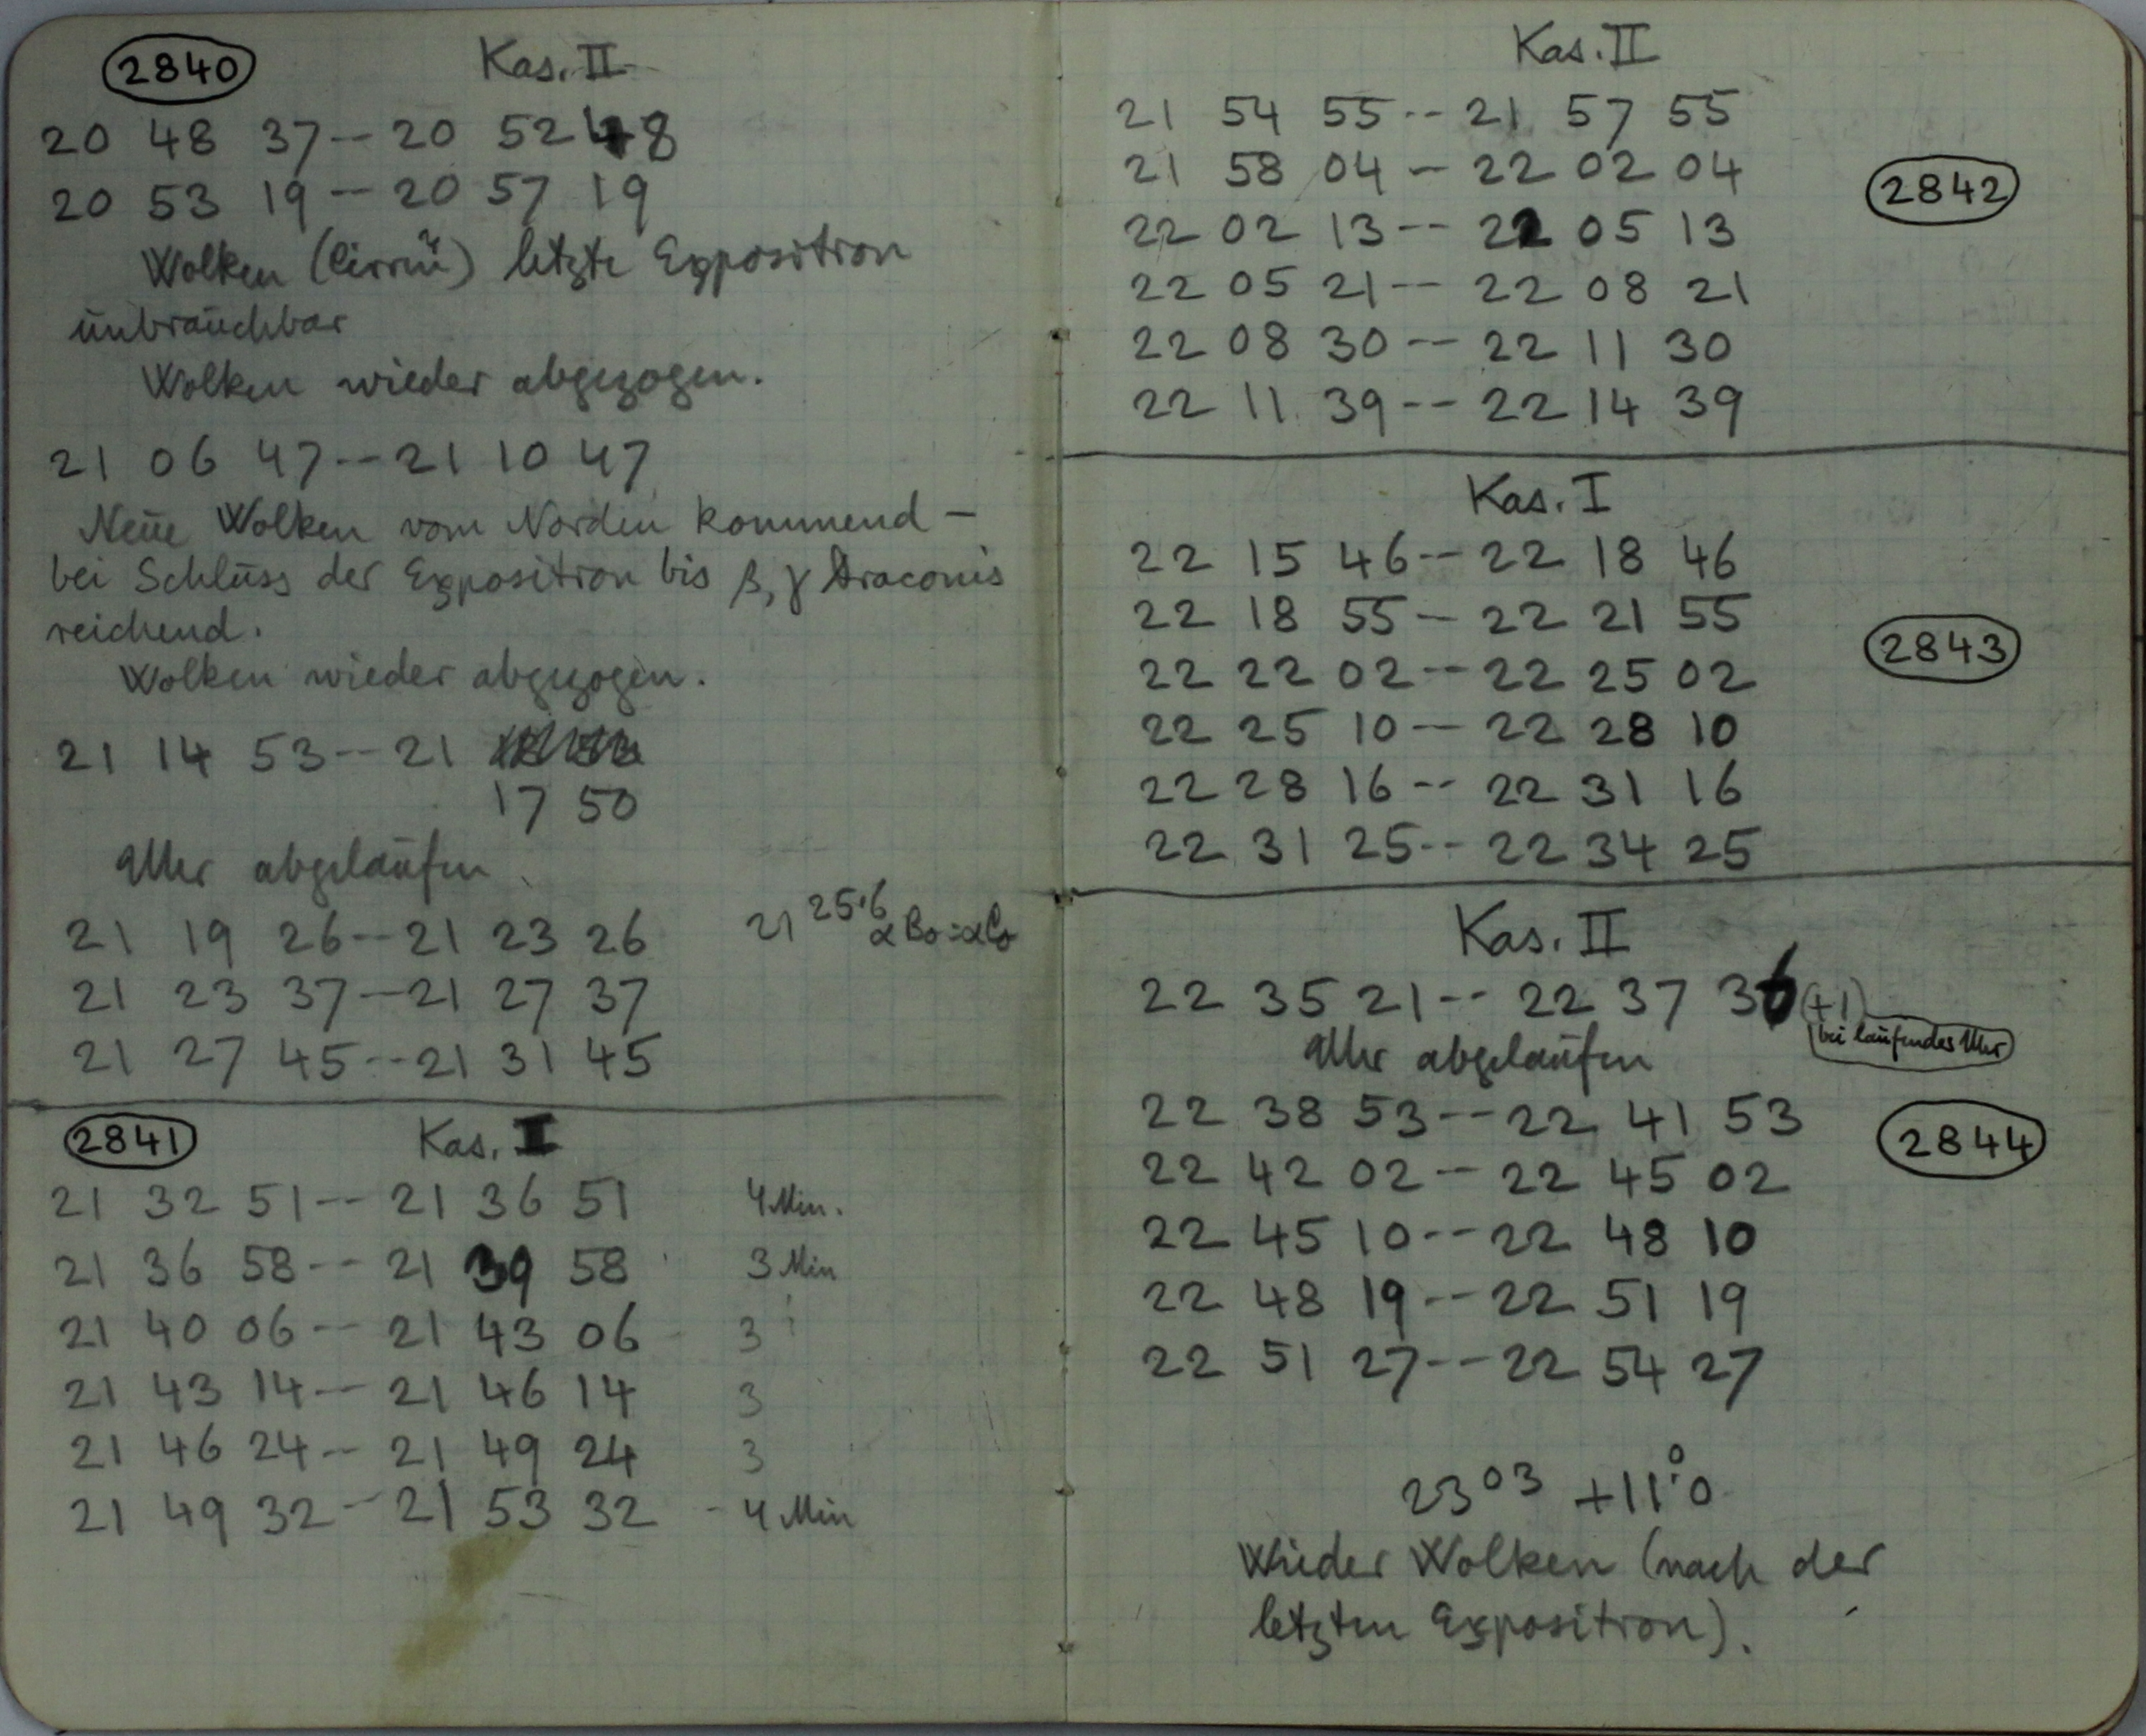 2840 Kas. II
20 48 37 -- 20 52 48
20 53 19 -- 20 57 19
Wolken (Cirrū) letzte Exposition
ūnbraūchbar
Wolken wieder abgezogen.
21 06 47 -- 21 10 47
Neūe Wolken vom Norden kommend –
bei Schlūss der Exposition bis β, γ Draconis
reichend.
Wolken wieder abgezogen.
21 14 53 -- 21
17 50
Uhr abgelaūfen
21 19 26 -- 21 23 26 21 25.6 α Bo = α Co
21 23 37 -- 21 27 37
21 27 45 -- 21 31 45
2841 Kas. I
21 32 51 -- 21 36 51 4 Min.
21 36 58 -- 21 39 58 3 Min
21 40 06 -- 21 43 06 3
21 43 14 -- 21 46 14 3
21 46 24 -- 21 49 24 3
21 49 32 -- 21 53 32 - 4 Min
Kas. II
21 54 55 -- 21 57 55
21 58 04 -- 22 02 04 2842
22 02 13 -- 22 05 13
22 05 21 -- 22 08 21
22 08 30 -- 22 11 30
22 11 39 -- 22 14 39
Kas. I
22 15 46 -- 22 18 46
22 18 55 -- 22 21 55
22 22 02 -- 22 25 02 2843
22 25 10 -- 22 28 10
22 28 16 -- 22 31 16
22 31 25 -- 22 34 25
Kas. II
22 35 21 -- 22 37 36 (+1)
bei laūfender Uhr
Uhr abgelaūfen
22 38 53 -- 22 41 53 2844
22 42 02 -- 22 45 02
22 45 10 -- 22 48 10
22 48 19 -- 22 51 19
22 51 27 -- 22 54 27
23 03 +11°.0
Wieder Wolken (nach der
letzten Exposition).